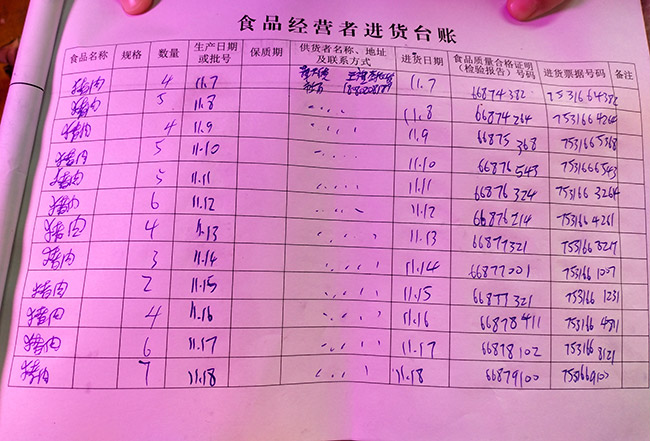 食品经营者进货台账
食品名称 规格 数量 生产日期或批号 保质期 供货者名称、地址及联系方式 进货日期 食品质量合格证明(检验报告)号码 进货票据号码 备注
猪肉 4 11.7 11.7 66874382 7531664382
猪肉 5 11.8 〃 11.8 66874264 7531664264
猪肉 4 11.9 〃 11.9 66875368 7531665368
猪肉 5 11.10 〃 11.10 66876543 7531666543
猪肉 5 11.11 〃 11.11 66876324 7531663264
猪肉 6 11.12 〃 11.12 66876214 7531664261
猪肉 4 11.13 〃 11.13 66877321 7531663247
猪肉 3 11.14 〃 11.14 66877001 7531661007
猪肉 2 11.15 〃 11.15 66877321 7531661231
猪肉 4 11.16 〃 11.16 66878411 753166
猪肉 6 11.17 〃 11.17 66878102 753166
猪肉 7 11.18 〃 11.18 66879100